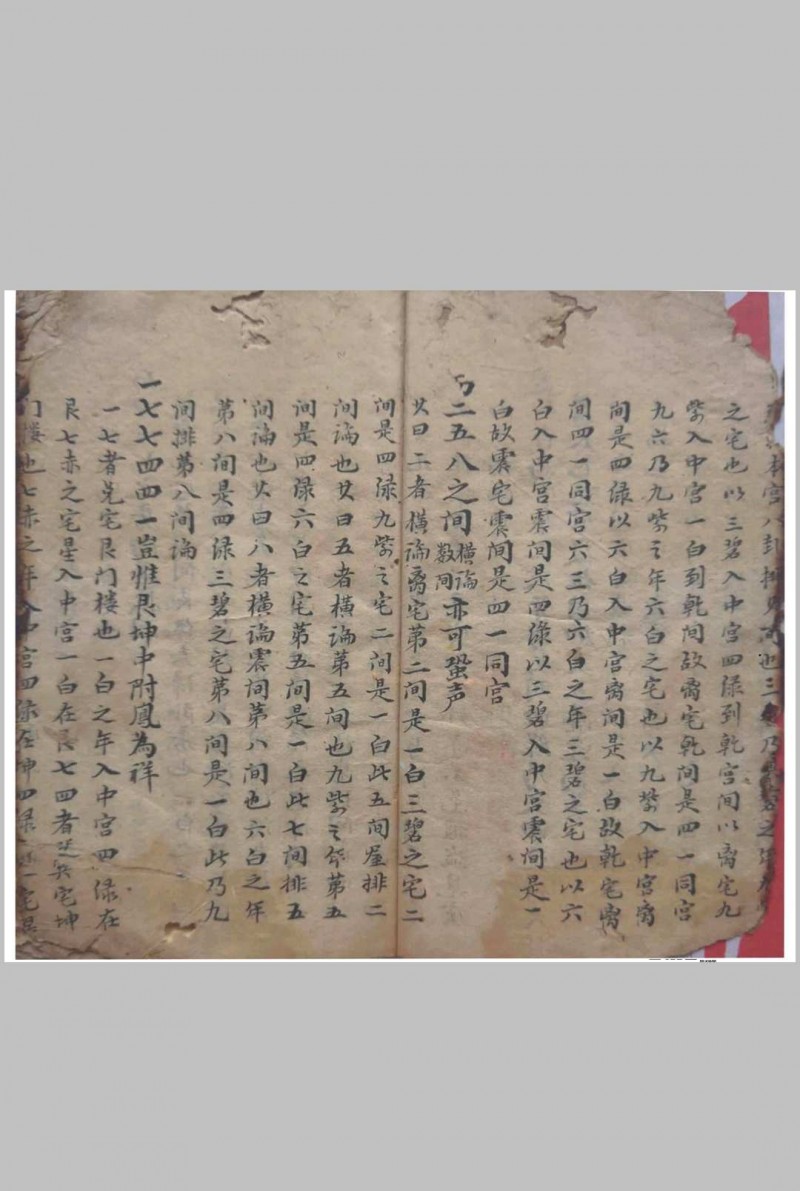 本宫八卦 间也三 乃 之
之宅也以三碧入中宫四绿到乾宫间以离宅九
紫入中宫一白到乾间故离宅乾间是四一同宫
九六乃九紫之年六白之宅也以九紫入中宫离
间是四绿以六白入中宫离间是一白故乾宅离
间四一同宫六三乃六白之年三碧之宅也以六
白入中宫震间是四绿以三碧入中宫震间是一
白故震宅震间是四一同宫
二五八之间横论数间亦可蛩声
㐅曰二者横论离宅第二间是一白三碧之宅二
间是四渌九紫之宅二间是一白此五间屋排二
间论也㐅曰五者横论第五间也九紫之年第五
间是四渌六白之宅第五间是一白此七间排五
间论也㐅曰八者横论震间第八间也六白之年
第八间是四渌三碧之宅第八间是一白此乃九
间排第八间论
一七七四四一豈惟艮坤中附鳳為祥
一七者兑宅艮门楼也一白之年入中宫四渌在
艮七赤之宅星入中宫一白在艮七四者是巽宅坤
门楼也七赤之年入中宫四渌在坤四绿 宅